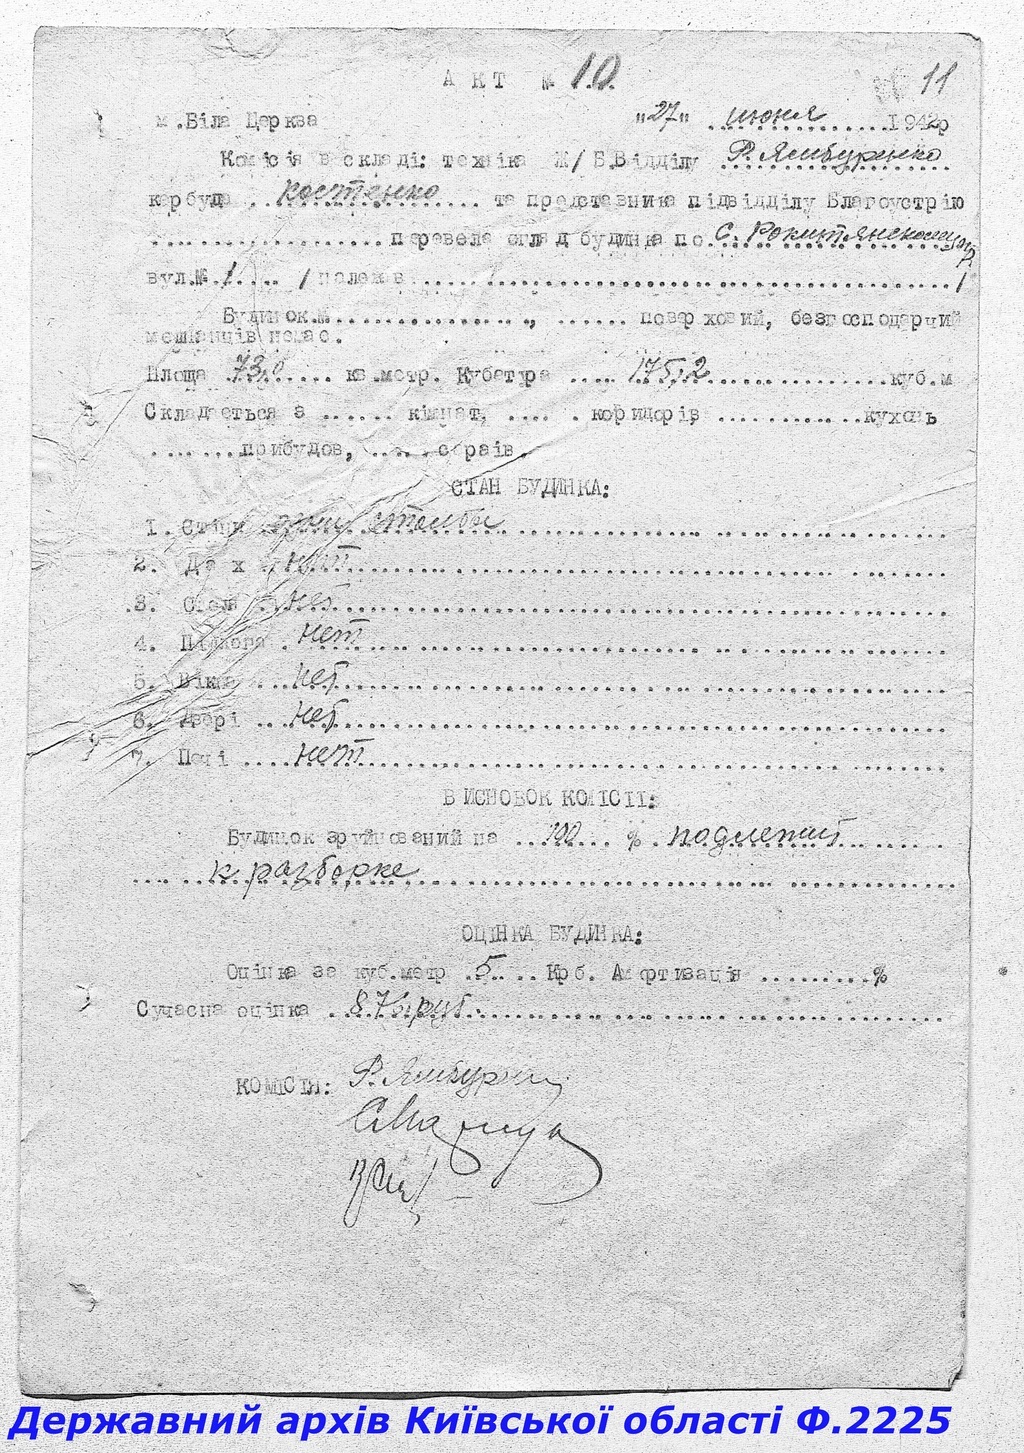 АКТ № 10. 11
м.Біла Церква "27" июня 1942р
Комісія в складі: техніка Ж/Б.Відділу Р. Ямбуренко
кербуда Костенко та представника підвідділу Благоустрію
перевела огляд будинка по С. Рокитянскому
вул.№ 1 /полежів /
Будинок.№ , поверховий, безгосподарчий
мешканців немає.
Площа 73,0 кв.метр. Кубатура 175,2 куб.м
Складається з кімнат, коридорів, кухонь
прибудов, сараїв.
СТАН БУДИНКА:
1. Стіни одни столбы
2. Дах нет
3. Стеля нет
4. Підлога нет
5. Вікна нет
6. Двері нет
7. Печі нет
ВИСНОВОК КОМІСІЇ:
Будинок зруйнований на 100 % подлежит
к разборке
ОЦІНКА БУДИНКА:
Оцінка за куб.метр 5 Крб. Амортизація %
Сучасна оцінка 876 руб.
КОМІСІЯ: Р. Ямбуренко
Державний архів Київської області Ф.2225